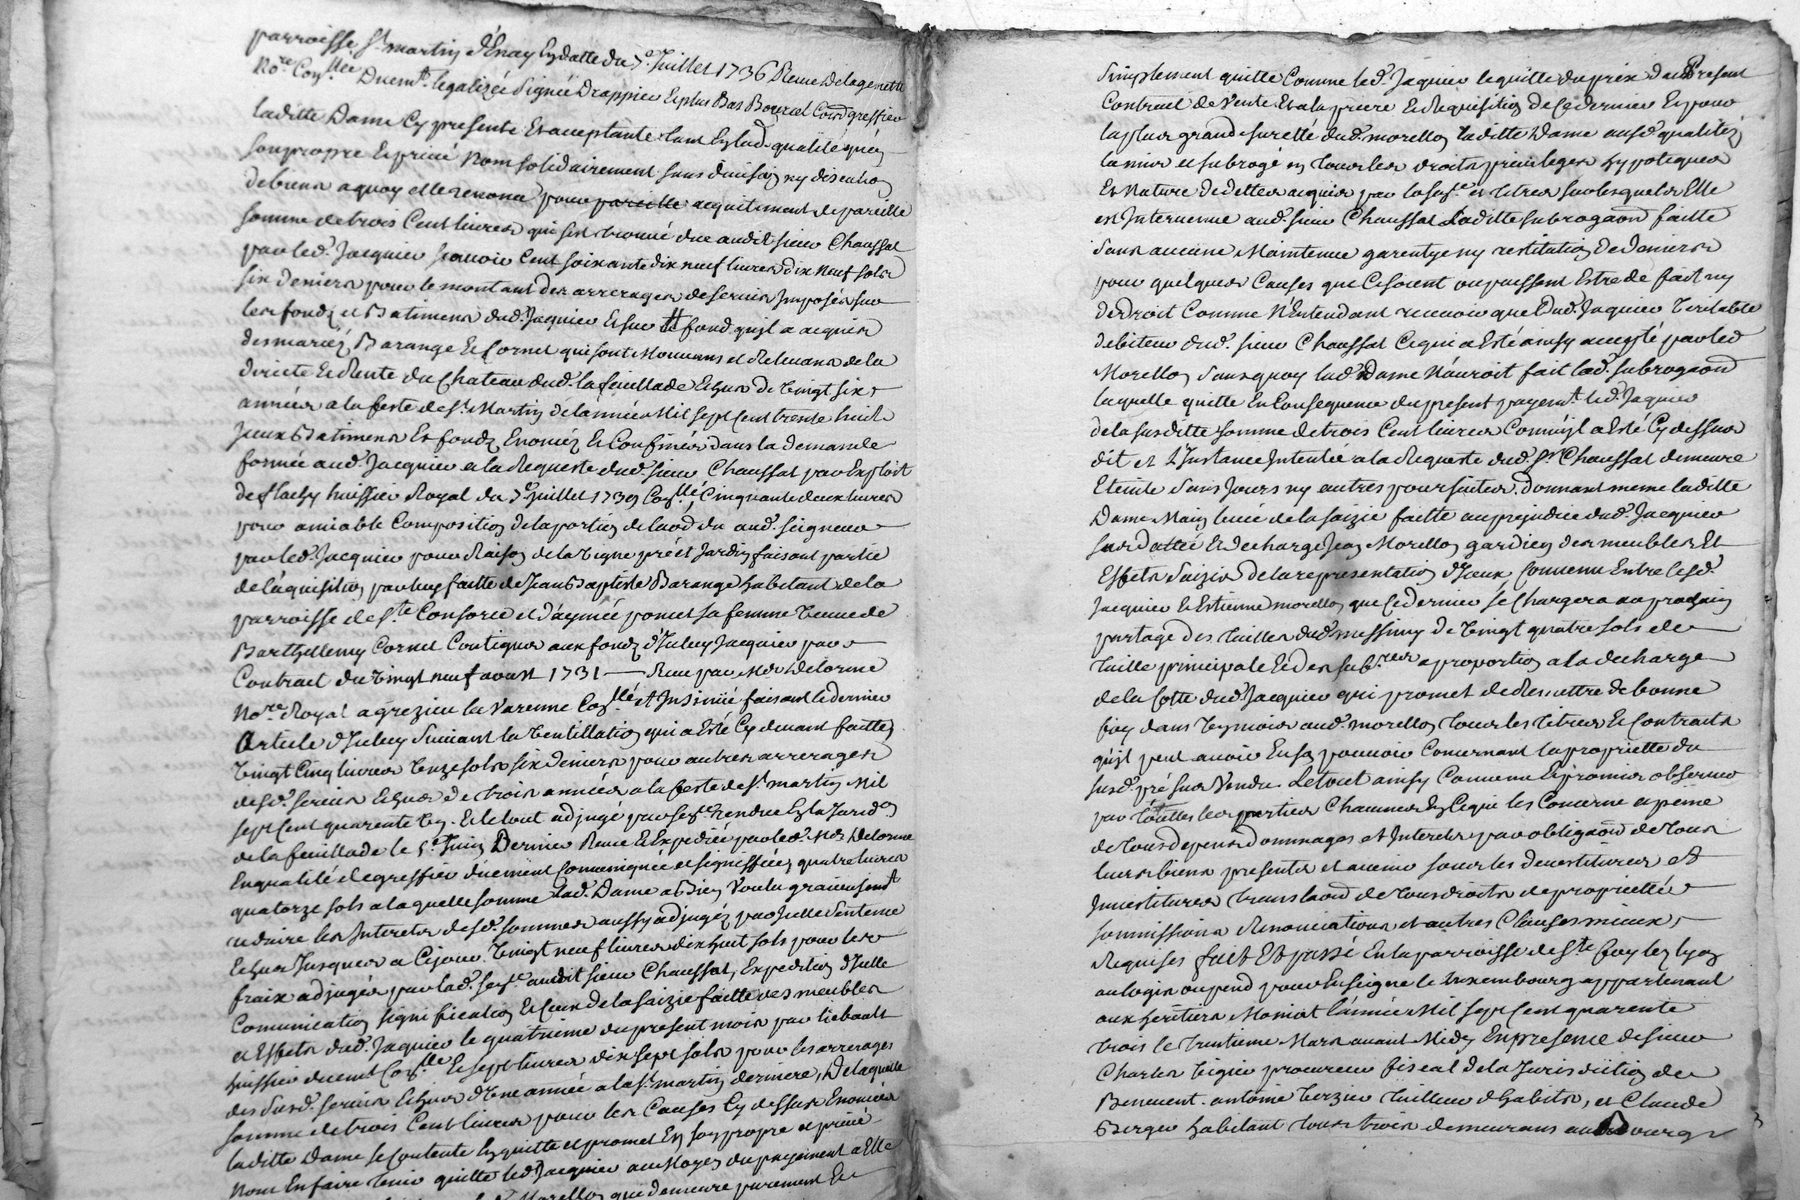 parroisse St martin d'Énay Endatte du 7e Juillet 1736 Reçue Delagenette
Nore Conllée Duemt legalizée Signée Drappier Et plus Bas Bourcel Comd greffier
laditte Dame Cy presente Et acceptante tant En lad. qualité qu'en
son propre Et privé Nom solidairement sans divission ny discution
de biens a quoy elle renonce pour pareille acquitement de pareille
somme de trois Cent livres qui s'est trouvé due audit sieur Chaussat
par led. Jacquier scavoir Cent soixante dix neuf livres dix neuf sols
six deniers pour le montant des arrerages de servis Imposés sur
les fondz et Batimens dud. Jacquier Et sur fond qu'jl a acquis
des mariéz Barange Et Cornet qui sont Mouvans et Relevans de la
directe Et Rente du Chateau dud. la feuillade Echus de Vingt six
années a la feste de St Martin de l'année Mil sept Cent trente huit
Jceux Batimens Et fondz Enoncéz Et Confinés dans la demande
formée aud. Jacquier a la Requeste dud. sieur Chaussat par Exploit
de flachy huissier Royal du 7e juillet 1739 Conllé, Cinquante deux livres
pour amiable Composition de la portion de laod du aud. seigneur
par led. Jacquier pour Raison de la Vigne pré et Jardin faisant partie
de l'acquisition par luy faitte de Jean Baptiste Barange habitant de la
parroisse de Ste Consorce et d'aymée poncet sa femme Veuve de
Barthellemy Cornet Contigus aux fondz d'Iceluy Jacquier par
Contract du Vingt neuf avout 1731 — Reçu par Me Delorme
Nore Royal a grezieu la Varenne Conllé et Insinüé faisant le dernier
Article d'Iceluy Suivant la Ventillation qui a Esté Cy devant faitte,
Vingt Cinq livres Unze sols six deniers pour autres arrerages
desd. servis Echus de trois années a la feste de St martin Mil
sept Cent quarente Un. Et le tout adjugé par Sence rendue En la Jurid.on
de la feuillade le 5e Juin Dernier Reçue Et Expediée par led. Me Delorme
En qualité de greffier düement Comuniquée et signiffiée, quatre livres
quatorze sols a laquelle somme lad. Dame a Bien Voulu gratieusemt
reduire les Interets desd. sommes aussy adjugéz par Jcelle Sentence
Echus Jusques a Cejour. Vingt neuf livres dix huit sols pour les
fraix adjugés par lad. Sence audit sieur Chaussat, Expedition d'Icelle
Comunication signification Et Ceux de la Saizie faitte des meubles
et Effets dud. Jacquier le quatrieme du present mois par liebault
huissier duemt Conllée Et sept livres dix sept sols pour les arrerages
des Susd. servis Echus d'Une année a la St martin derniere, De laquelle
somme de trois Cent livres pour les Causes Cy dessus Enoncées
laditte Dame se Contente En quitte et promet En son propre et privé
Nom En faire tenir quitte led. Jacquier au Moyen du payement a Elle
Morellon que demeure purement Et
Simplement quitte Comme led. Jacquier le quitte du prix du Present
Contract de Vente Et a la priere Et Requisition de Ce dernier Et pour
la plus grande suretté dud. morellon laditte Dame ausd. qualitéz
la mis et subrogé en tous les droits privileges hypoteques
Et Nature de dettes acquis par la Sence et titres sur lesquels Elle
est Intervenue aud. sieur Chaussat Laditte subrogaon faitte
sans aucune Maintenue garentye ny restitution de deniers
pour quelques Causes que Ce soient ou puissent Estre de fait ny
de Droit Comme N'Entendant recevoir que Dud. Jaquier Veritable
debiteur dud. sieur Chaussat Ce qui a Esté ainsy accepté par led
Morellon Sans quoy lad. Dame N'auroit fait lad. subrogaon
laquelle quitte En Consequence du present payemt led. Jaquier
de la susditte somme de trois Cent livres Comm'jl a Esté Cy dessus
dit et L'Instance Intentée a la Requeste dud. Sr Chaussat demeure
Eteinte sans Jours ny autres poursuites, donnant meme laditte
Dame Main levée de la Saizie faitte au prejudice dud. Jacquier
sus dattée Et decharge Jean Morellon gardien des meubles Et
Effets Saizis de la representation d'Iceux, Convenu Entre lesd.
Jacquier Et Estienne morellon que Ce dernier se Chargera au prochain
partage des tailles dud. messimy de Vingt quatre sols de
taille principale Et des subres a proportion a la decharge
de la Cotte dud. Jacquier qui promet de Remettre de bonne
foy dans Un mois aud. morellon tous les titres Et Contracts
qu'jl peut avoir En son pouvoir Concernant la propriette du
susd. pré sus Vendu. Le tout ainsy Convenu Et promis observer
par touttes les parties Chacunes En Ce qui les Concerne a peine
de tous depens Dommages et Interets par obligaon de tous
leurs biens presents et avenir sous les devestitures et
Investitures translaon de tous droits de proprietté
sommissions Renonciations et autres Clauses mieux
Requises fait Et passé En la parroisse de Ste foy les lyon
au logis ou pend pour Enseigne le Luxembourg appartenant
aux heritiers Moniat l'année Mil sept Cent quarente
trois le trentieme Mars avant Midy En presence de sieur
Charles Vigier procureur fiscal de la Jurisdiction de
Benevent. antoine Verzier tailleur d'habits, et Claude
Berger habitant tous trois demeurans au Bourg